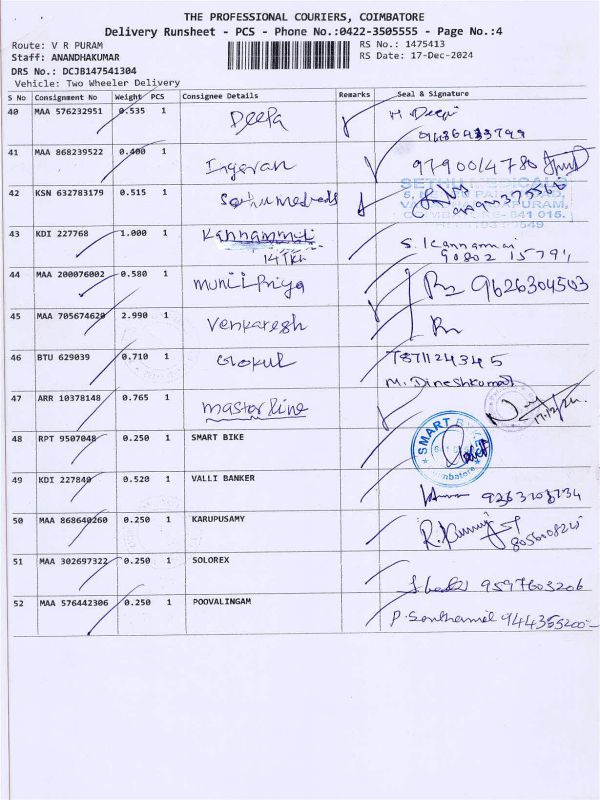 THE PROFESSIONAL COURIERS, COIMBATORE
Delivery Runsheet - PCS - Phone No.:0422-3505555 - Page No.:4
Route: V R PURAM
RS No.: 1475413
Staff: ANANDHAKUMAR
RS Date: 17-Dec-2024
DRS No.: DCJB147541304
Vehicle: Two Wheeler Delivery
S No Consignment No Weight PCS Consignee Details Remarks Seal & Signature
40 MAA 576232951 0.535 1 Deepa
41 MAA 868239522 0.400 1
42 KSN 632783179 0.515 1
43 KDI 227768 1.000 1 Kannammal S. Kannammai
44 MAA 200076002 0.580 1 9626304503
45 MAA 705674620 2.990 1 Venkatesh
46 BTU 629039 0.710 1 Gokul 7871124345
M. Dineshkumar
47 ARR 10378148 0.765 1 Master line
48 RPT 9507048 0.250 1 SMART BIKE SMART
49 KDI 227840 0.520 1 VALLI BANKER
50 MAA 868640260 0.250 1 KARUPUSAMY
51 MAA 302697322 0.250 1 SOLOREX 9597603206
52 MAA 576442306 0.250 1 POOVALINGAM